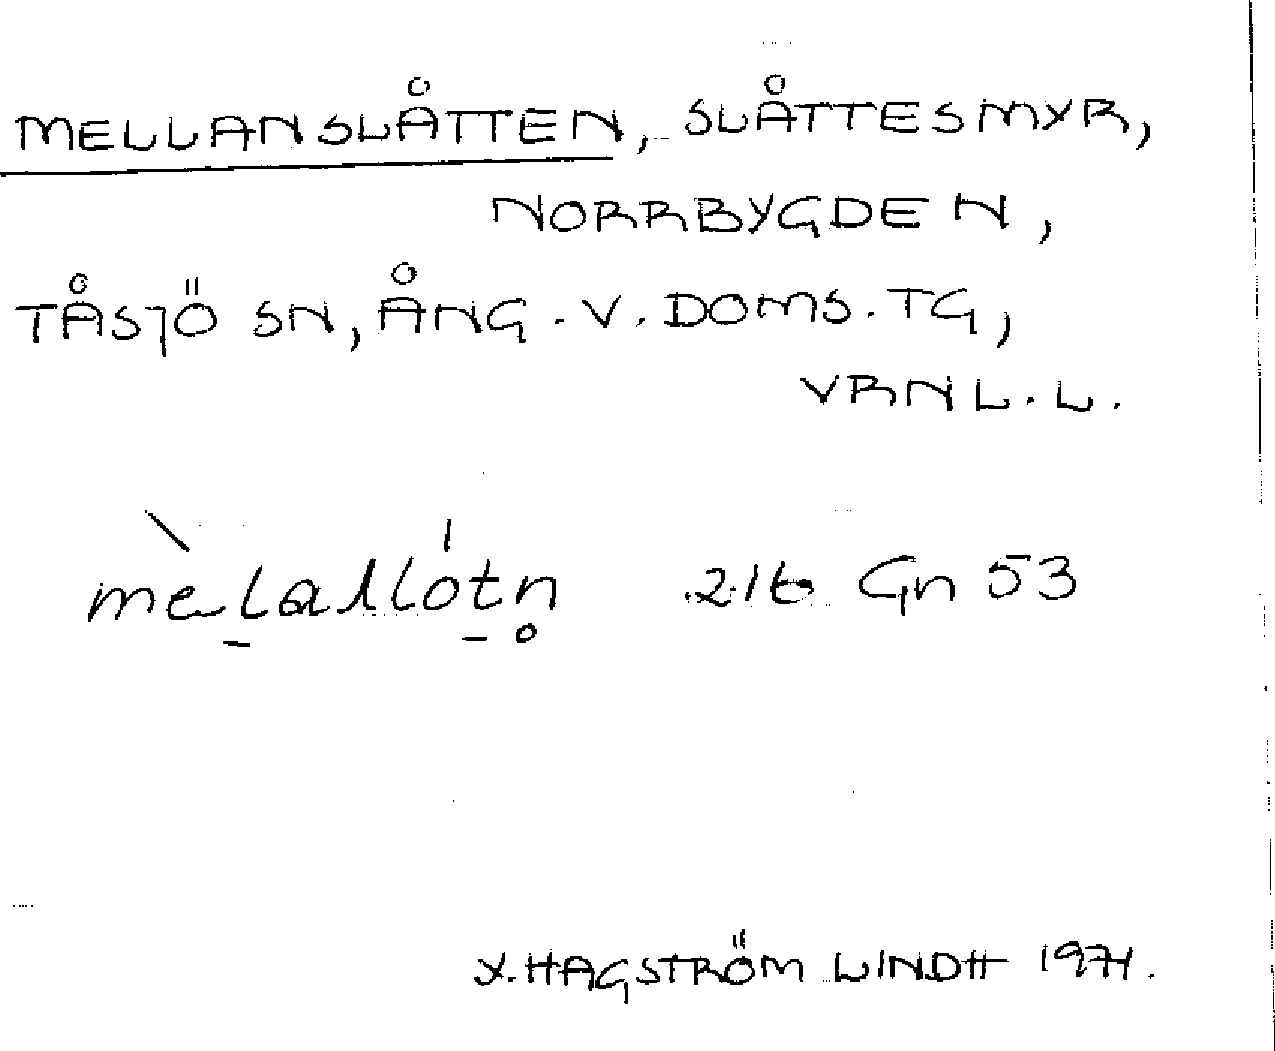 MELLANSLÅTTEN, SLÅTTESMYR,
NORRBYGDEN,
TÅSJÖ SN, ÅNG. V. DOMS. TG,
VRNL. L.
21b Gn 53
Y. HAGSTRÖM LINDH 1974.